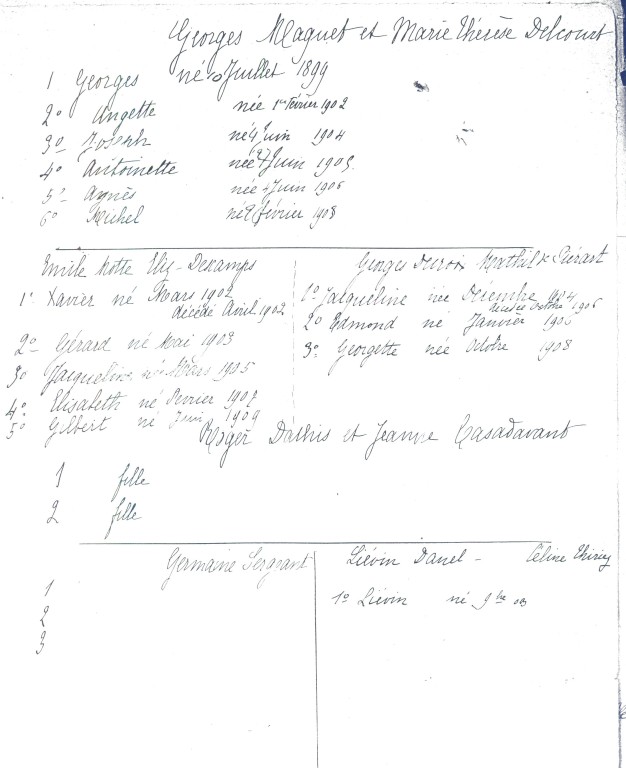 Georges Maquet et Marie Thérèse Delcourt
1 Georges né 10 Juillet 1899
2° Angette née 1er Février 1902
3° Joseph né 4 Juin 1904
4° Antoinette née 7 Juin 1905
5° Agnès née Juin 1906
6° Michel né 2 février 1908
Emile Motte Descamps
1° Xavier né Mars 1902
décédé Avril 1902
2° Gérard né Mai 1903
3° Jacqueline née Mars 1905
4° Elisabeth né Fevrier 1907
5° Gilbert né Juin 1909
Georges Mathilde Piérart
1° Jacqueline née Décembre 1904
décédée Octobre 1906
2° Edmond né Janvier 1906
3° Georgette née Octobre 1908
Roger Dathis et Jeanne Casadavant
1 fille
2 fille
Germaine Sergeant
1
2
3
Liévin Danel - Céline Thiriez
1° Liévin né 9bre 03